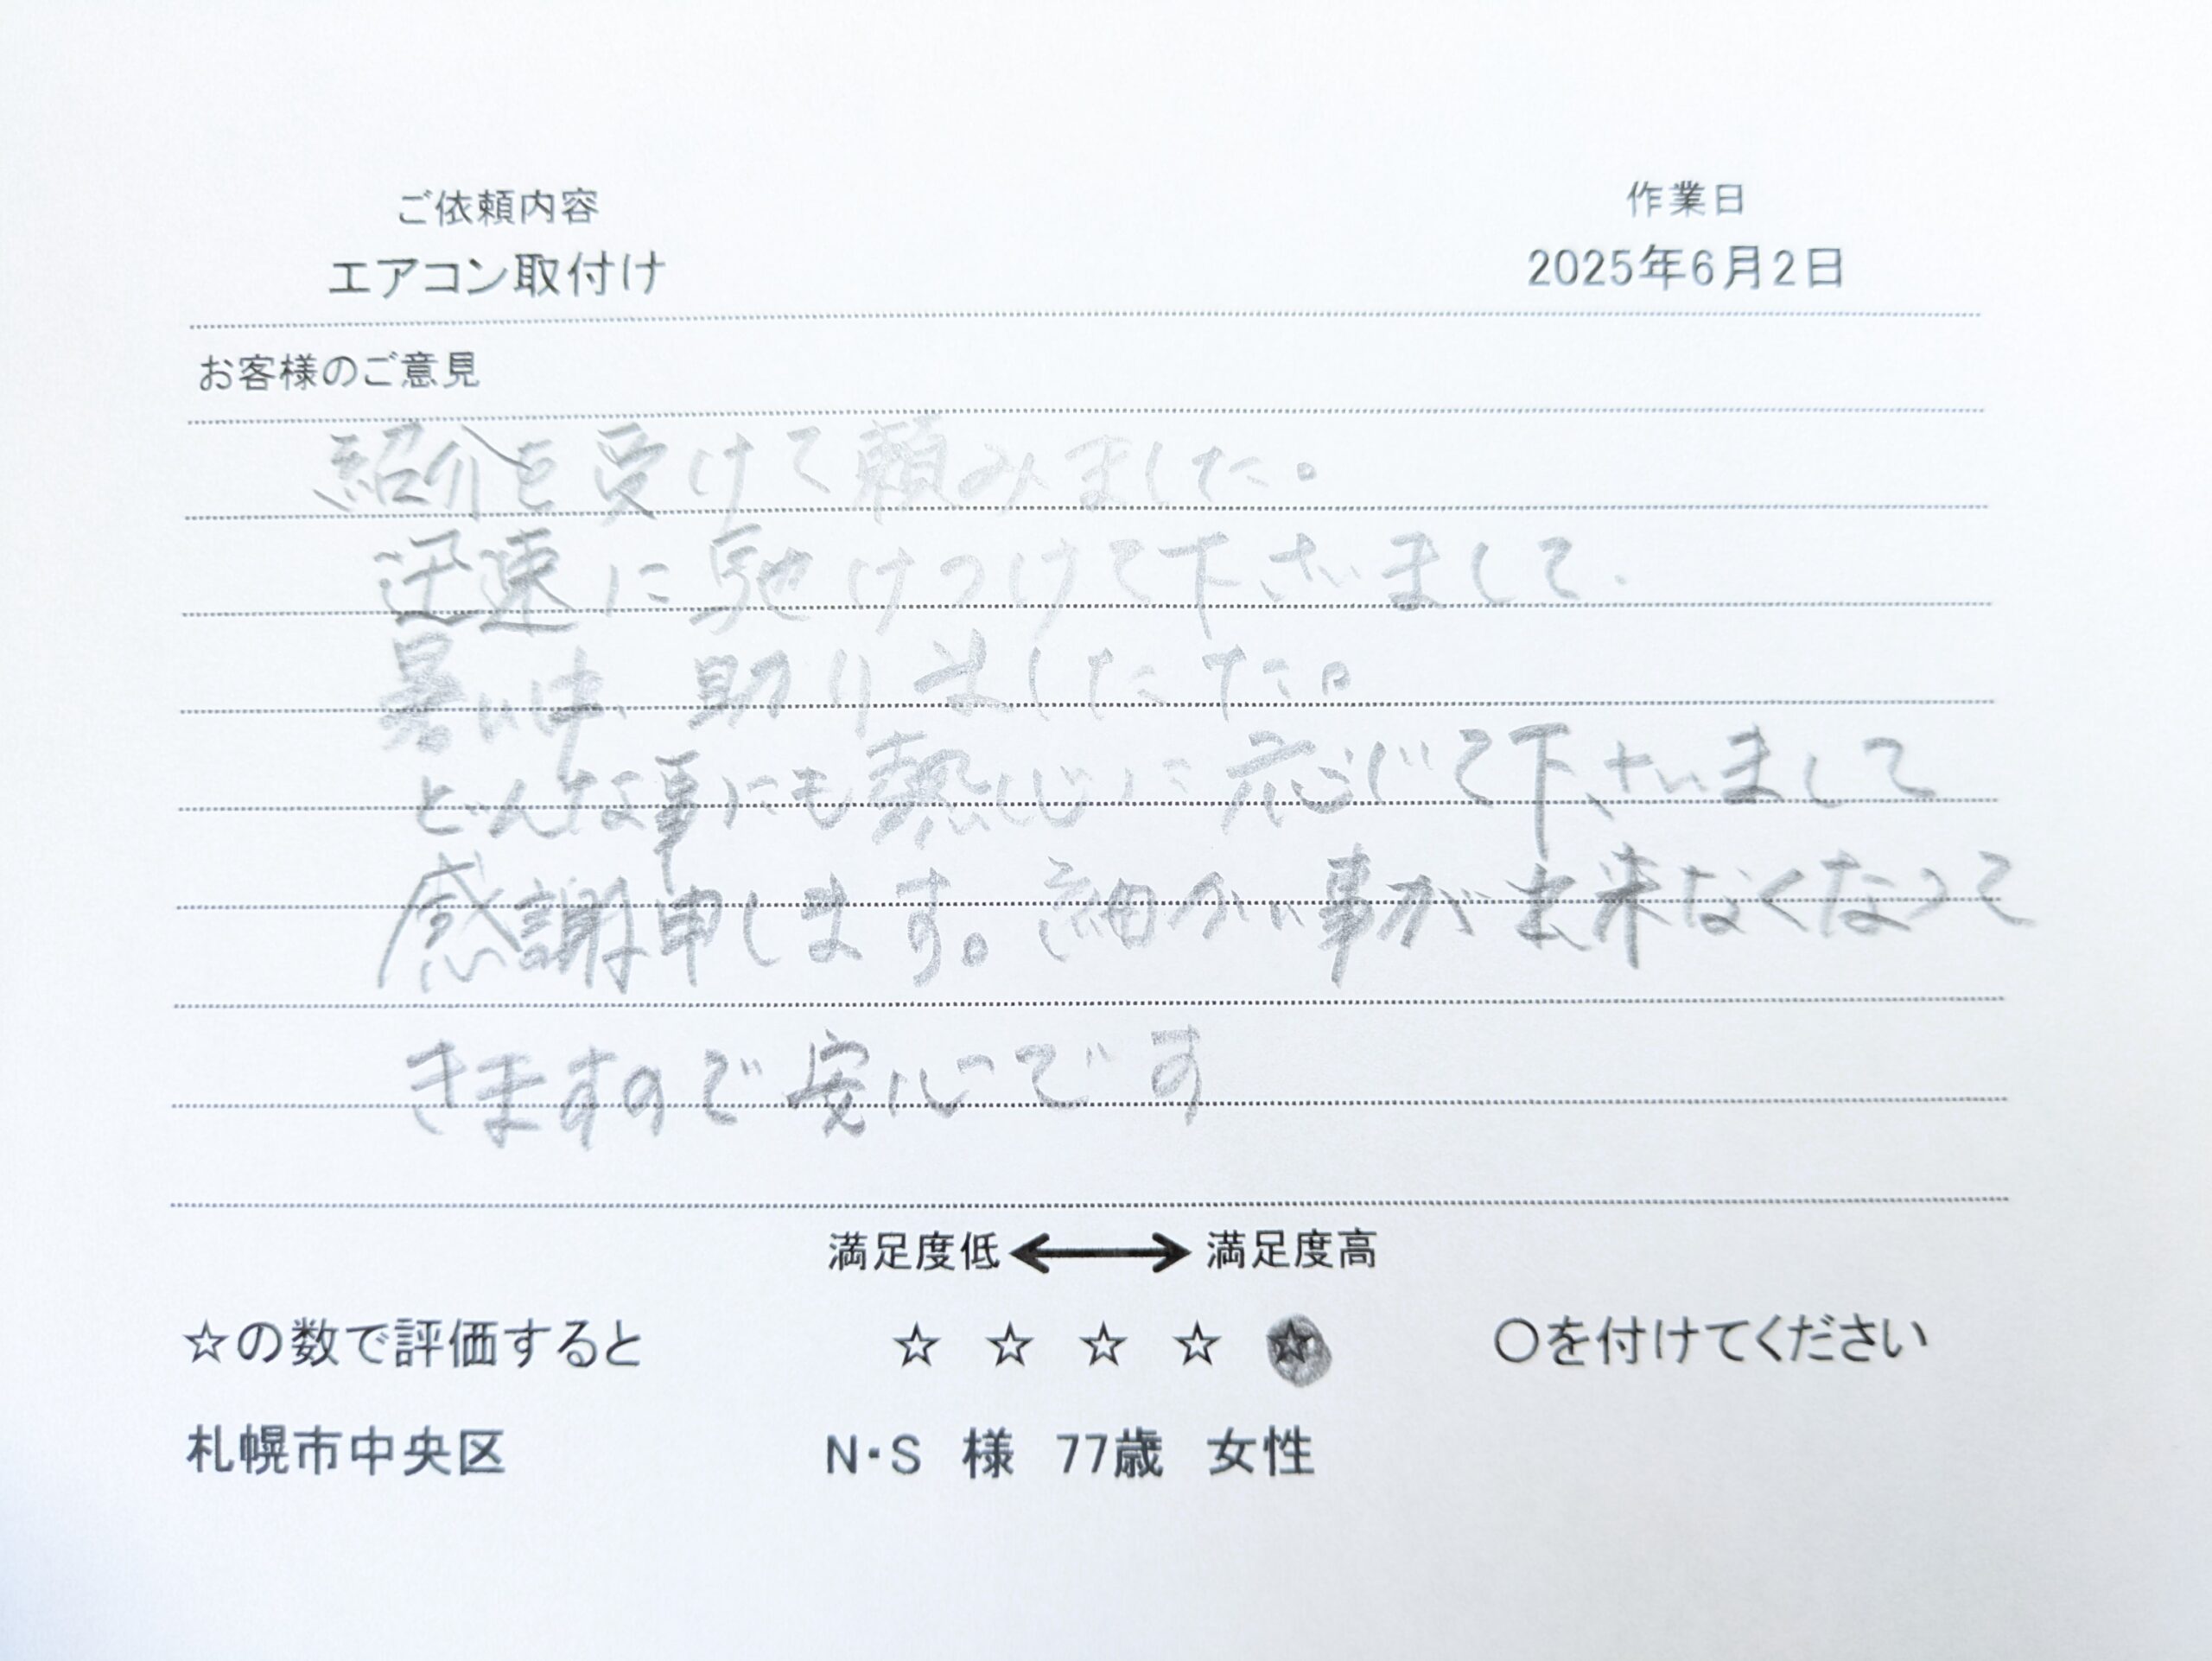 ご依頼内容
作業日
エアコン取付け
2025年6月2日
お客様のご意見
紹介を受けて頼みました。
迅速に馳けつけて下さいまして、
暑い中、助りましたた。
どんな事にも熱心に応じて下さいまして
感謝申します。細かい事が出来なくなって
きますので安心です
満足度低 ⟷ 満足度高
☆の数で評価すると ☆ ☆ ☆ ☆ ☆ ○を付けてください
札幌市中央区 N・S 様 77歳 女性